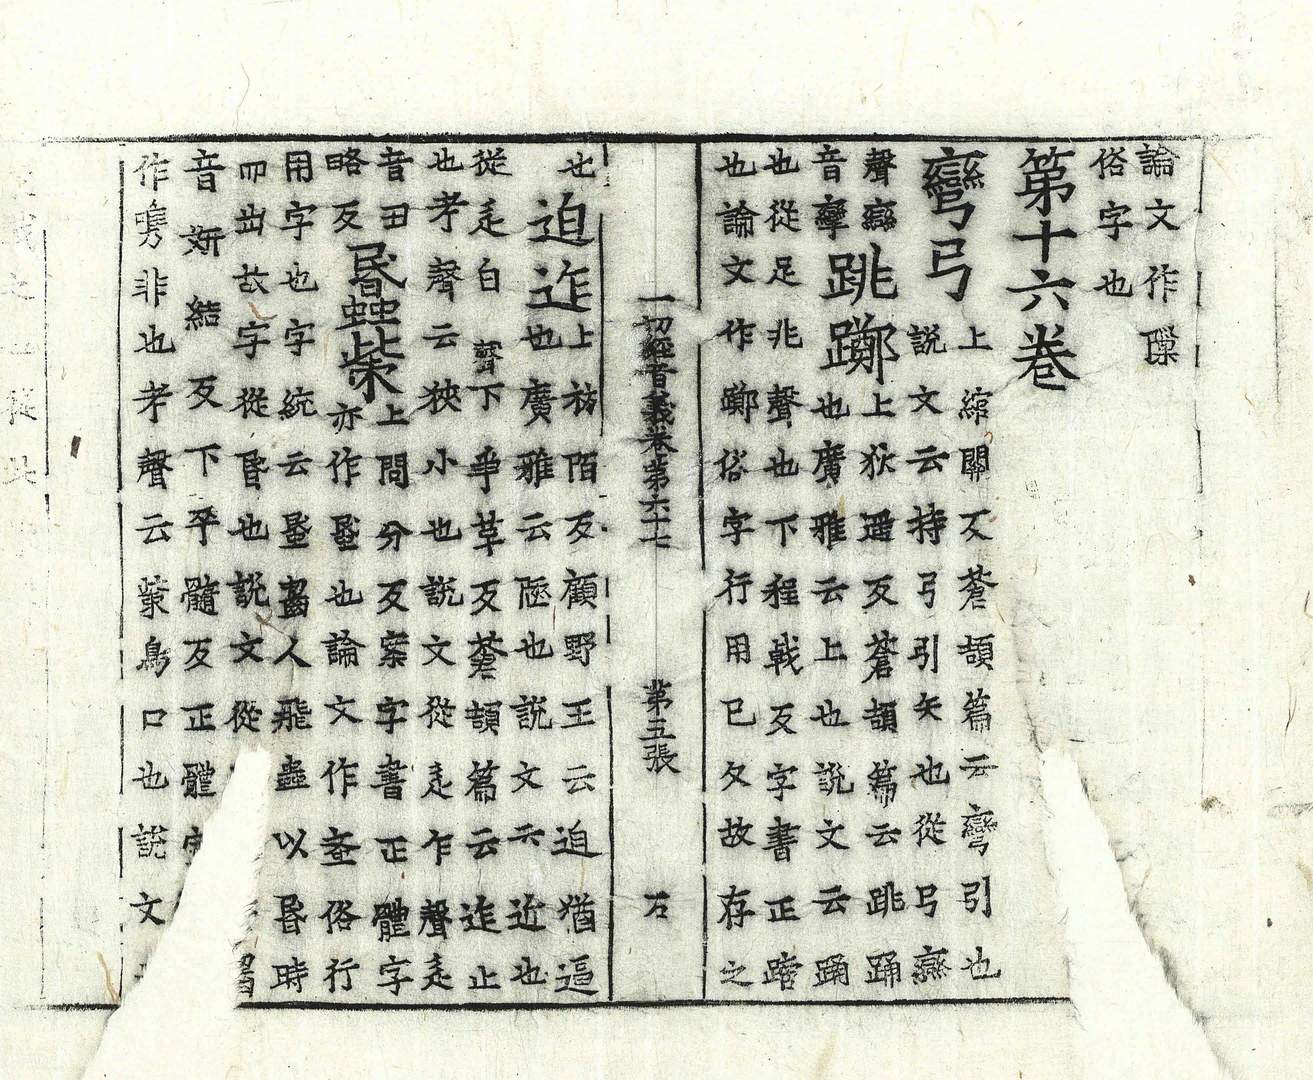 論文作㒍
俗字也
第十六卷
彎弓
上綰關反蒼頡篇云彎引也
說文云持弓引矢也從弓䜌
聲䜌
音孿
跳躑
上狄遥反蒼頡篇云跳踊
也廣雅云上也說文云踊
也從足兆聲也下程戟反字書正蹢
也論文作躑俗字行用已久故存之
一切經音義卷第六十七 第五張 石
也
迫迮
上柏陌反顧野王云迫猶逼
也廣雅云陿也說文云近也
從辵白聲下爭革反蒼頡篇云迮止
也考聲云狹小也說文從辵乍聲辵
音丑
略反
䘇䖟𭩓
上問分反案字書正體字
亦作䘇也論文作蚉俗行
用字也字統云䘇齧人飛蟲以昏時
而出故字從昏也說文從
音姸結反下卒髓反正體
作㗱非也考聲云策鳥口也說文